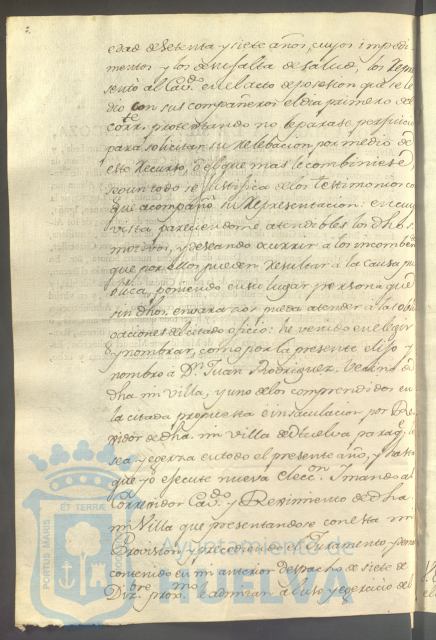 2.
edad de setenta y siete años, cuyos impedi-
mentos y los de su falta de salud, los Repre-
sentó al Cav.do en el acto de posesion que se le
dio con sus compañeros el dia primero del
corr.te protextando no le parase perjuicio
para solicitar su Relebacion por medio de
este Recurso, ó el que mas le combiniese
segun todo se justifica de los testimonios con
que acompañó su Representacion: en cuya
vista pareciendome atendibles los dhos
motivos, y deseando ocurrir a los incombenientes
que por ellos pueden Resultar a la causa pu-
blica, poniendo en su lugar persona que
sin dhos embarazos pueda atender a las obli-
gaciones del citado oficio: he venido en elegir
y nombrar, como por la presente elijo y
nombro á Dn. Juan Rodriguez, Vecino de
dha mi Villa, y uno de los comprendidos en
la citada propuesta é insaculacion por Re-
gidor de dha. mi Villa de Huelva para q.e lo
sea y egerza en todo el presente año, y hasta
que yo ejecute nueva elecc.on Y mando al
Corregidor Cav.do y Regimiento de dha
mi Villa que presentandose con esta mi
Provision, y precediendo el Juramento y demas
contenido en mi anterior despacho de siete de
Diz.bre prox.mo le admitan al uso y egercicio del
PORTUS MARIS
ET TERRAE
CUSTODIA
Ayuntamiento de
HUELVA